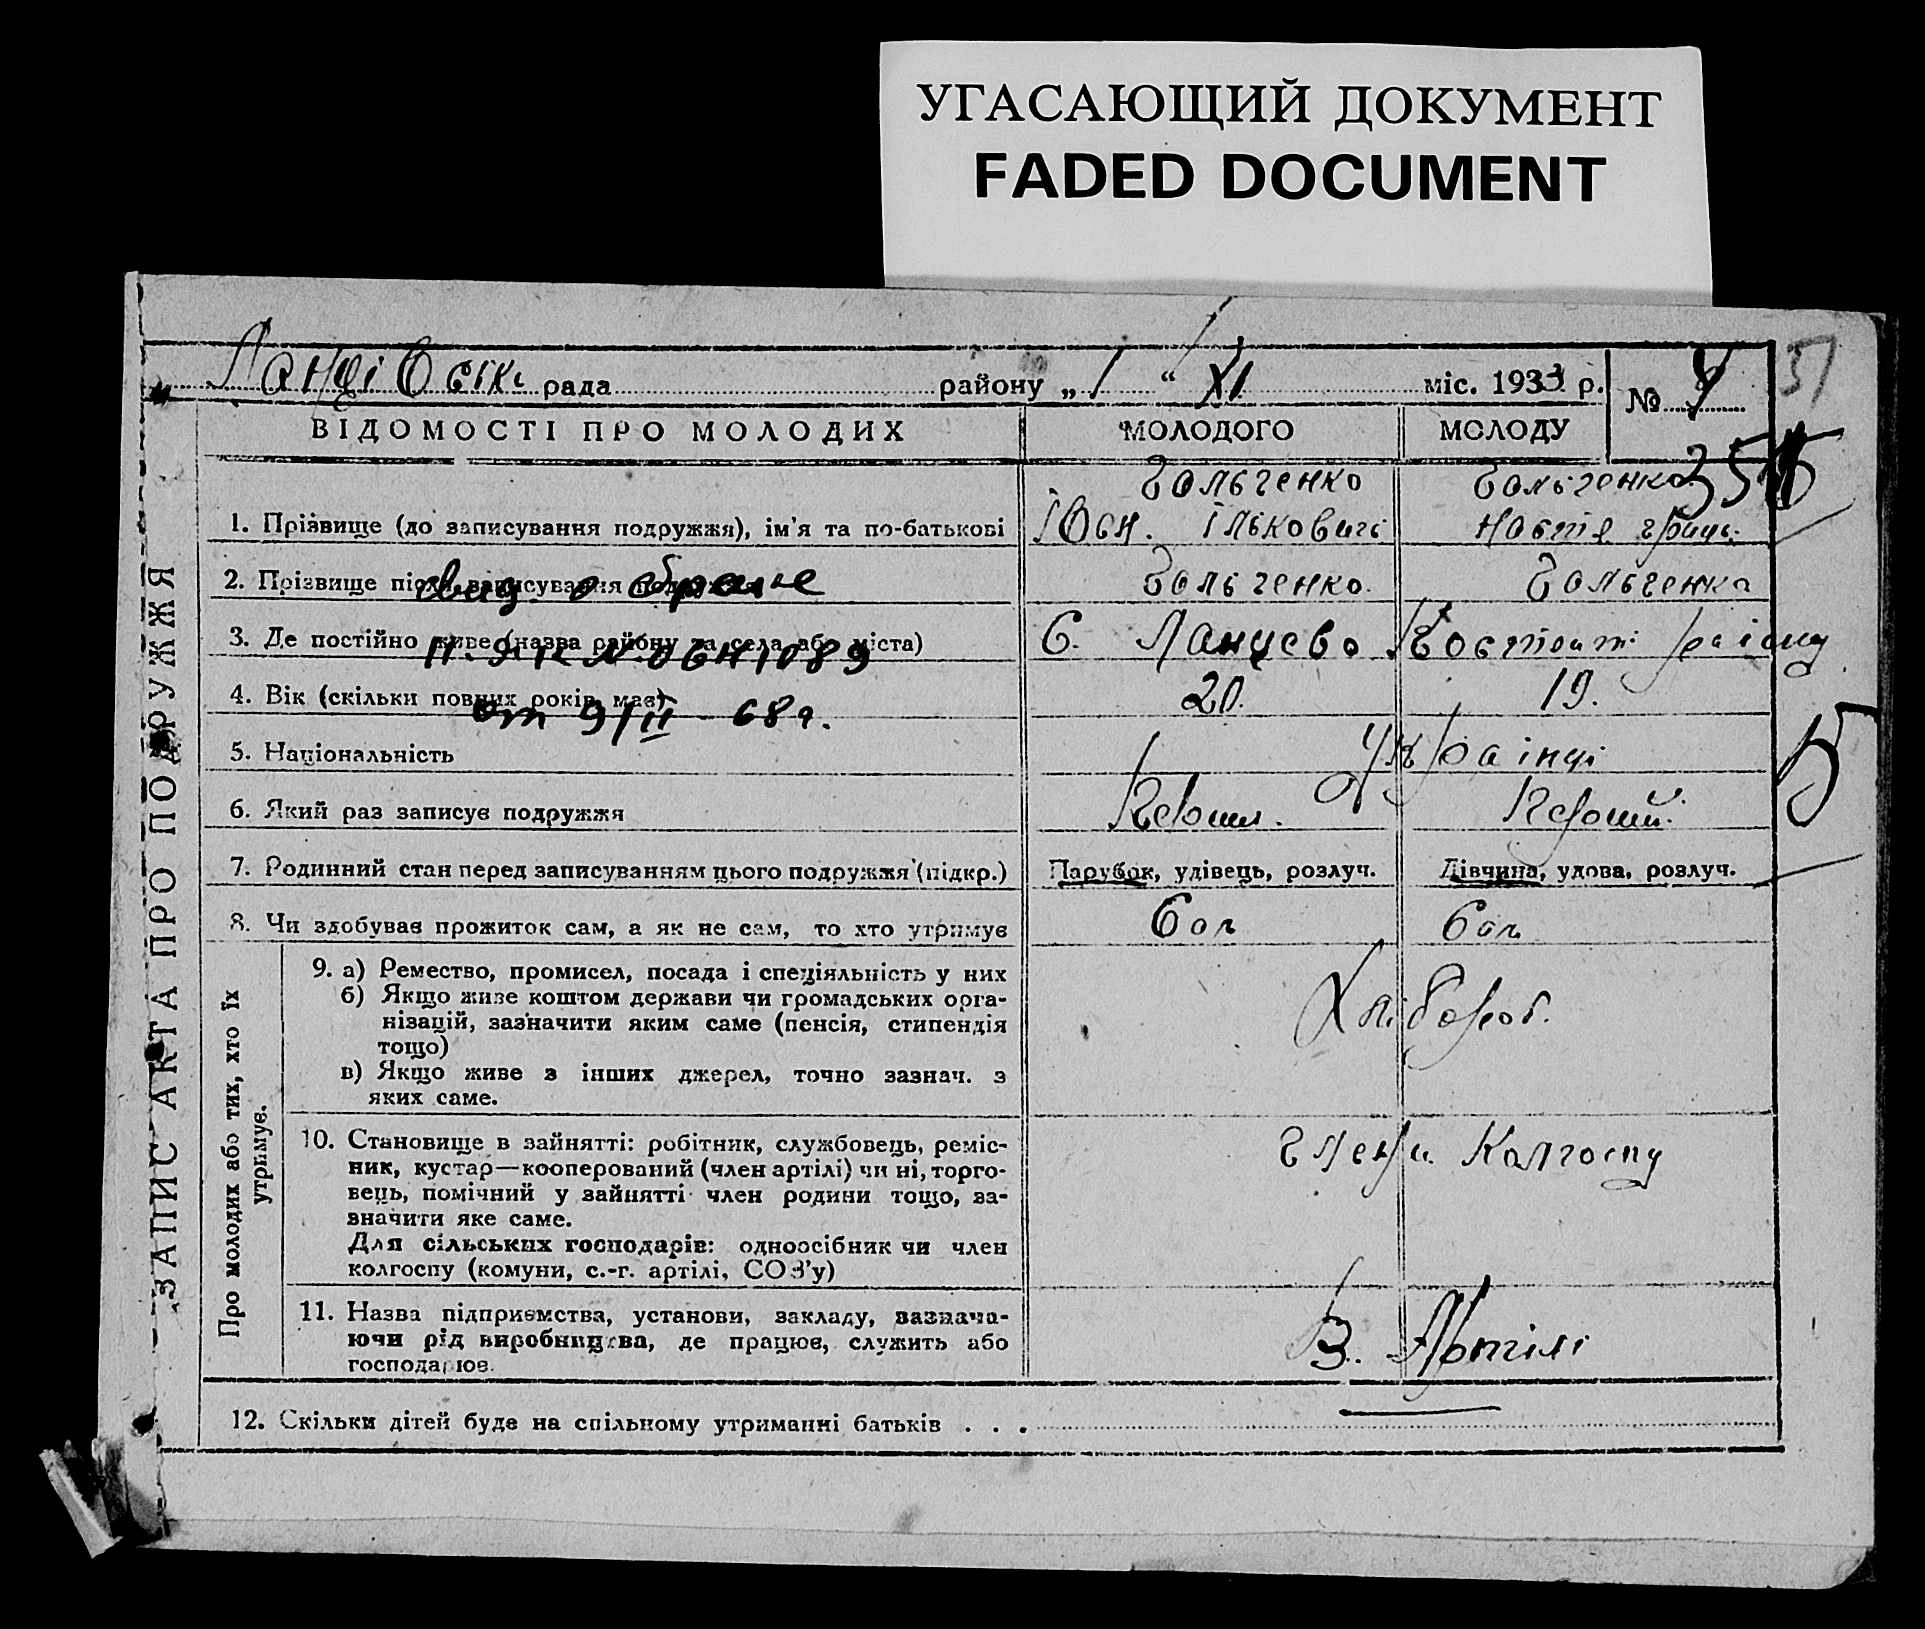 УГАСАЮЩИЙ ДОКУМЕНТ
FADED DOCUMENT
ЗАПИС АКТА ПРО ПОДРУЖЖЯ
рада району „ 1 “ XI міс. 1933 р. №
51
ВІДОМОСТІ ПРО МОЛОДИХ МОЛОДОГО МОЛОДУ
355
1. Прізвище (до записування подружжя), ім'я та по-батькові
Гольченко Гольченко
Ількович
2. Прізвище після записування подружжя Гольченко Гольченко
свид. о браке
3. Де постійно живе (назва району та села або міста) С. Ланцево району
1089
4. Вік (скільки повних років має) 20. 19.
от 9/II 68 г.
5. Національність Українці
6. Який раз записує подружжя Перший. Перший.
7. Родинний стан перед записуванням цього подружжя (підкр.) Парубок, удівець, розлуч. Дівчина, удова, розлуч.
8. Чи здобуває прожиток сам, а як не сам, то хто утримує Сам Сам
Про молодих або тих, хто їх
утримує.
9. а) Ремество, промисел, посада і спеціяльність у них
б) Якщо живе коштом держави чи громадських орга-
нізацій, зазначити яким саме (пенсія, стипендія
тощо)
в) Якщо живе з інших джерел, точно зазнач. з
яких саме.
Хлібороб.
10. Становище в зайнятті: робітник, службовець, реміс-
ник, кустар—кооперований (член артілі) чи ні, торго-
вець, помічний у зайнятті член родини тощо, за-
значити яке саме.
Для сільських господарів: одноосібник чи член
колгоспу (комуни, с.-г. артілі, СОЗ'у)
члени Колгоспу
11. Назва підприємства, установи, закладу, зазнача-
ючи рід виробництва, де працює, служить або
господарює.
В. Артілі
12. Скільки дітей буде на спільному утриманні батьків . . .